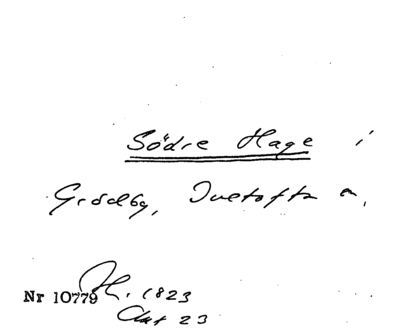 Södre Hage i
Grödby, Tvetofta s,
Nr 10779 H. 1823
Akt 23